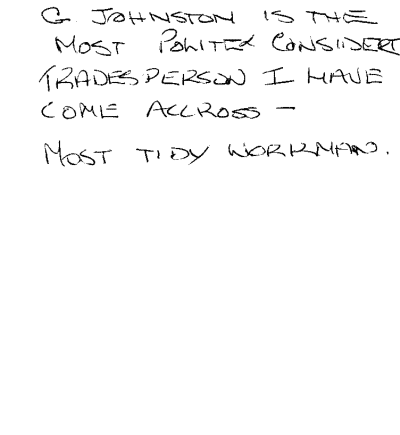 G JOHNSTON IS THE
MOST POLITE & CONSIIDERT
TRADESPERSON I HAVE
COME ACCROSS -
MOST TIDY WORKMAN.